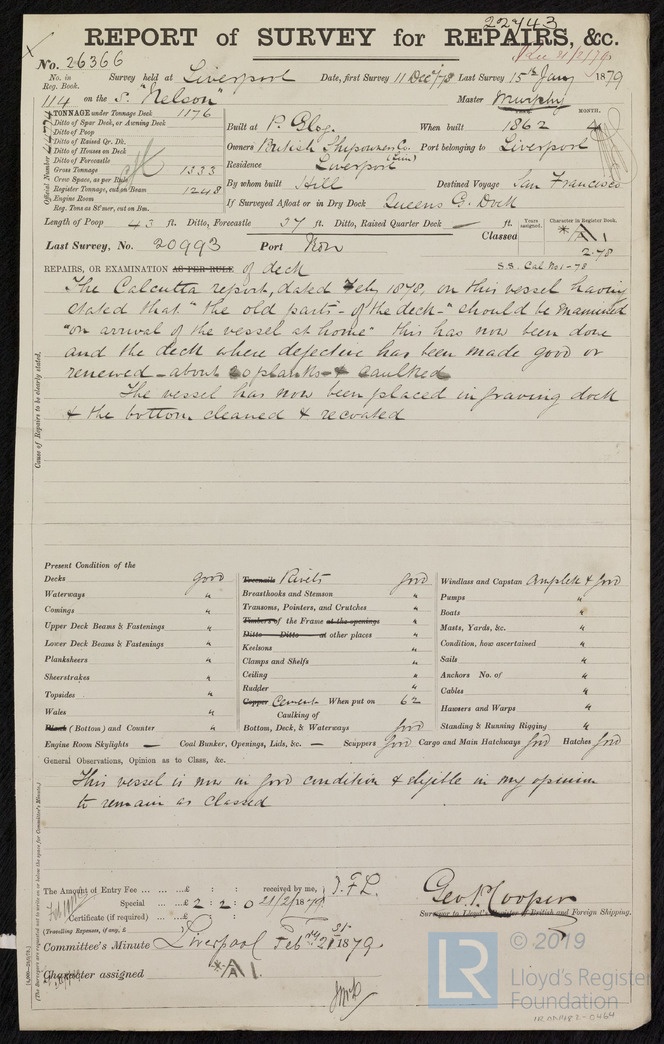 22443
REPORT of SURVEY for REPAIRS, &c.
No. 26366
No. in Reg. Book. Survey held at Liverpool Date, first Survey 11 Decr 78 Last Survey 15th Jany 1879
114 on the S. "Nelson" Master Murphy
TONNAGE under Tonnage Deck 1176
Ditto of Spar Deck, or Awning Deck
Ditto of Poop
Ditto of Raised Qr. Dk.
Ditto of Houses on Deck
Ditto of Forecastle
Gross Tonnage 1333
Crew Space, as per Rule
Register Tonnage, cut on Beam 1248
Engine Room
Reg. Tons as St'mer, cut on Bm.
Official Number
Built at P. Glas. When built 1862 MONTH. 4
Owners British Shipowners Co. (Lim) Port belonging to Liverpool
Residence Liverpool
By whom built Hill Destined Voyage San Francisco
If Surveyed Afloat or in Dry Dock Queens G. Dock
Length of Poop 43 ft. Ditto, Forecastle 37 ft. Ditto, Raised Quarter Deck — ft.
Years assigned. Character in Register Book.
Classed *A1
2.78
Last Survey, No. 20993 Port
S.S. Cal No 1-78
REPAIRS, OR EXAMINATION AS PER RULE of deck
The Calcutta report, dated Feby 1878, on this vessel having
stated that "the old parts - of the deck -" should be examined
"on arrival of the vessel at home" this has now been done
and the deck where defective has been made good or
renewed - about 20 planks - & caulked
The vessel has now been placed in graving dock
& the bottom cleaned & recoated
Cause of Repairs to be clearly stated.
Present Condition of the
Decks good
Waterways "
Comings "
Upper Deck Beams & Fastenings "
Lower Deck Beams & Fastenings "
Planksheers "
Sheerstrakes "
Topsides "
Wales "
Plank (Bottom) and Counter "
Treenails Rivets good
Breasthooks and Stemson "
Transoms, Pointers, and Crutches "
Timbers of the Frame at the openings "
Ditto Ditto at other places "
Keelsons "
Clamps and Shelfs "
Ceiling "
Rudder "
Copper Cement When put on 62
Caulking of
Bottom, Deck, & Waterways good
Windlass and Capstan Complete & good
Pumps "
Boats "
Masts, Yards, &c. "
Condition, how ascertained "
Sails "
Anchors No. of "
Cables "
Hawsers and Warps "
Standing & Running Rigging "
Engine Room Skylights — Coal Bunker, Openings, Lids, &c. — Scuppers good Cargo and Main Hatchways good Hatches good
General Observations, Opinion as to Class, &c.
This vessel is now in good condition & eligible in my opinion
to remain as classed
The Amount of Entry Fee ... £ : : received by me, J.F.L.
Special ... £ 2 : 2 : 0 21/2/1879
Certificate (if required) ... : :
(Travelling Expenses, if any, £
Geo. P. Cooper
Surveyor to Lloyd's Register of British and Foreign Shipping.
Committee's Minute Liverpool Feby 21st 1879.
Character assigned *A1.
LR © 2019
Lloyd's Register
Foundation